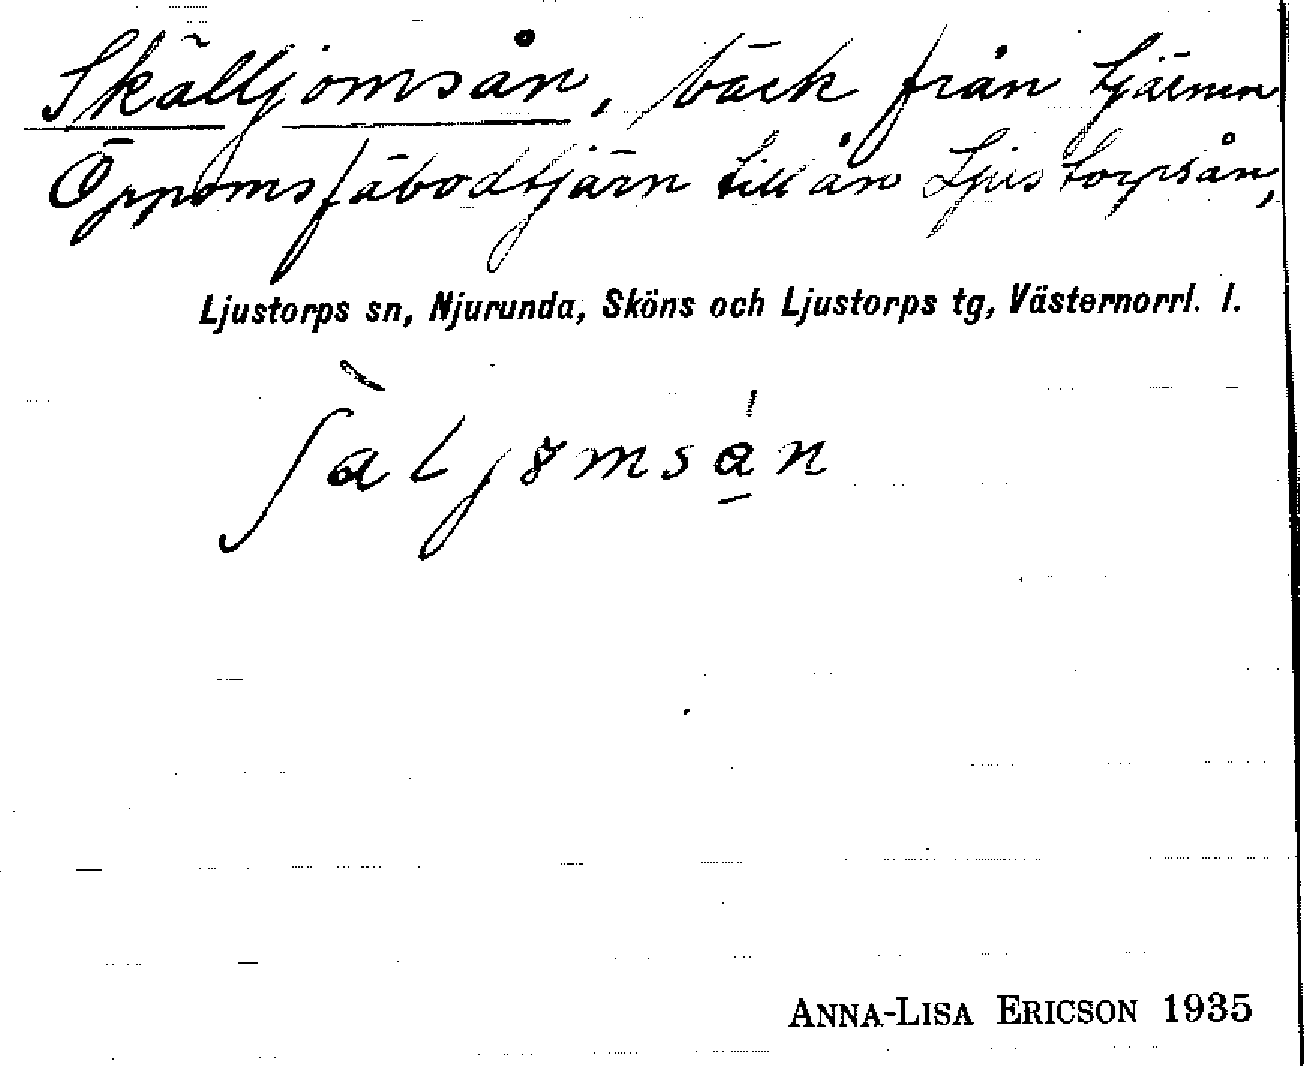 Skälljomsån, bäck från tjärnen
Öppomsfäbodtjärn till ån Ljustorpsån,
Ljustorps sn, Njurunda, Sköns och Ljustorps tg, Västernorrl. l.
ʃὰLjɤmsán
ANNA-LISA ERICSON 1935